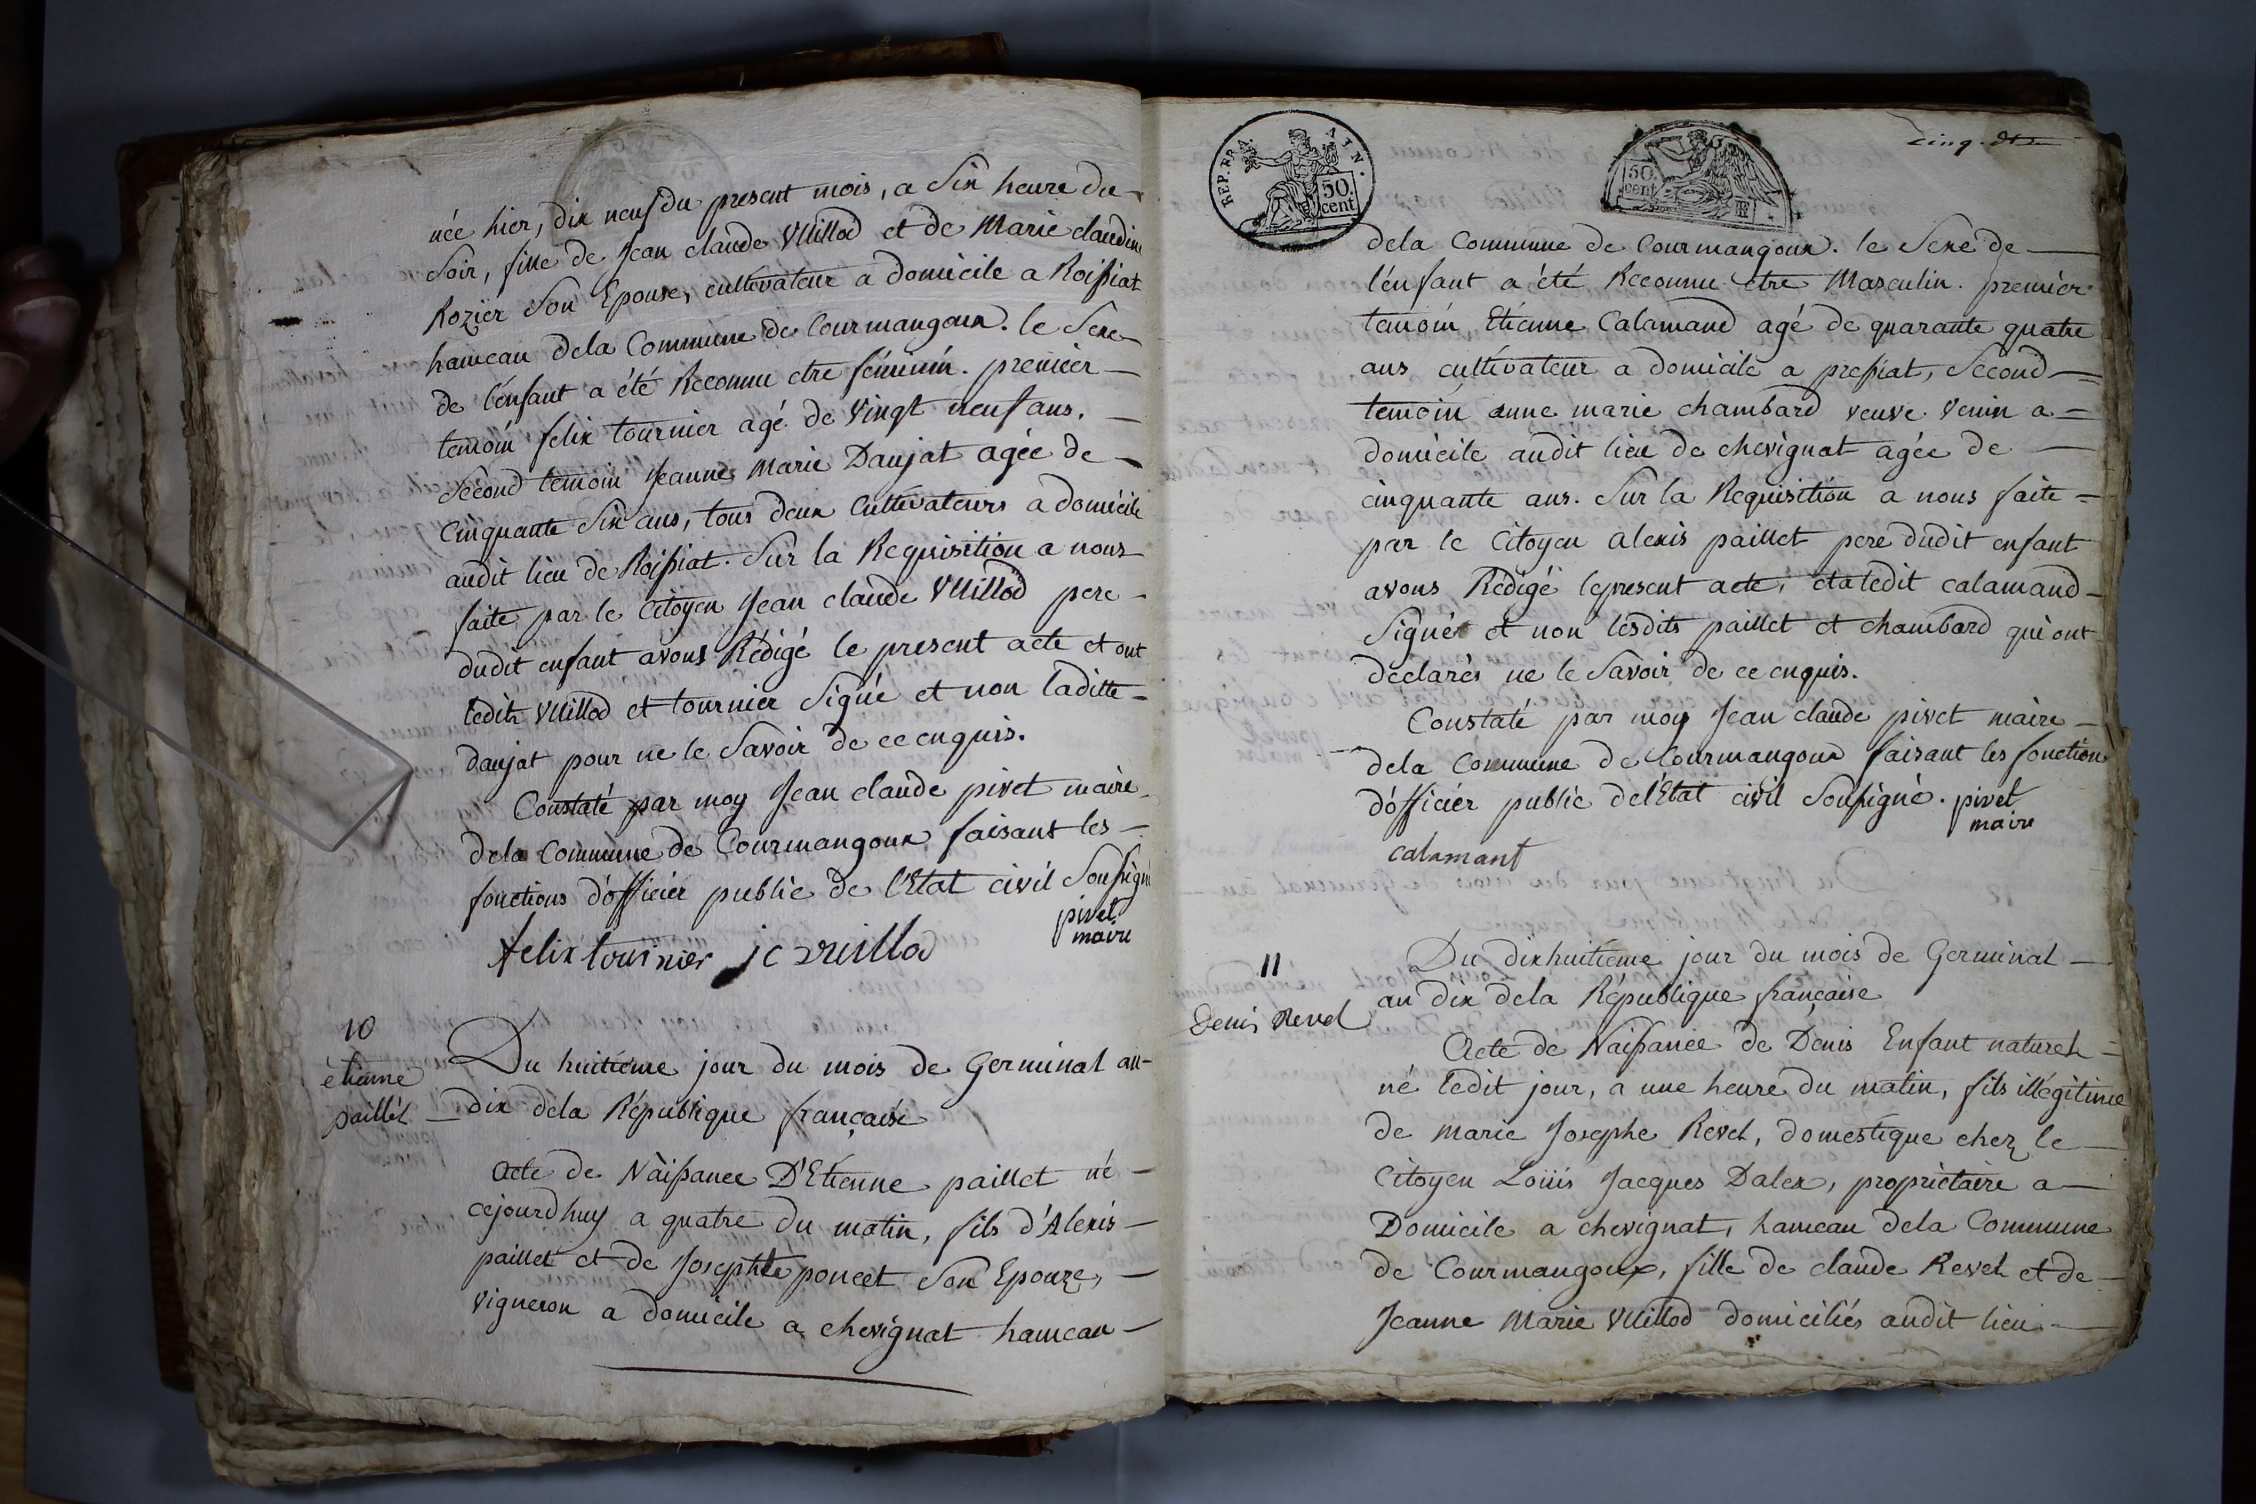 née hier, dix neuf du present mois, a Six heure du
Soir, fille de Jean claude Vuillod et de Marie claudine
Rozier Son Epouse, cultivateur a domicile a Roissiat
hameau dela Commune de Courmangoux. le Sexe
de l'enfant a été Reconnu etre féminin. premier
temoin felix tournier agé de Vingt neuf ans.
Second temoin Jeanne Marie Daujat agée de
Cinquante Six ans, tous deux Cultivateurs a domicile
audit lieu de Roissiat. Sur la Requisition a nous
faite par le Citoyen Jean claude Vuillod pere
dudit enfant avons Rédigé le present acte et ont
ledit Vuillod et tournier Signé et non laditte
daujat pour ne le Savoir de ce enquis.
Constaté par moy Jean claude pivet maire
dela Commune de Courmangoux faisant les
fonctions d'officier public de l'Etat civil Soussigné
pivet
maire
felix tournier jc vuillod
10
étienne
paillet
Du huitieme jour du mois de Germinal an
dix dela République française
Acte de Naissance D'Etienne paillet né
cejourdhuy a quatre du matin, fils d'Alexis
paillet et de Josephte poncet Son Epouze,
Vigneron a domicile a chevignat hameau
REP. FRA. AIN.
50.
cent
50.
cent
Cinq.
dela Commune de Courmangoux. le Sexe de
l'enfant a été Reconnu etre Masculin. premier
temoin, Etienne Calamand agé de quarante quatre
ans cultivateur a domicile a pressiat, Second
temoin anne marie chambard veuve Venin a
domicile audit lieu de chevignat agée de
cinquante ans. Sur la Requisition a nous faite
par le Citoyen alexis paillet pere dudit enfant
avons Rédigé lepresent acte, eta ledit calamand
Signé et non lesdits paillet et chambard qui ont
déclarés ne le Savoir de ce enquis.
Constaté par moy Jean claude pivet maire
dela Commune de Courmangoux faisant les fonctions
d'officier public del'Etat civil Soussigné. pivet
maire
calamant
11
Denis Revel
Du dixhuitieme jour du mois de Germinal
an dix dela République française
Acte de Naissance de Denis Enfant naturel
né ledit jour, a une heure du matin, fils illégitime
de marie Josephe Revel, domestique chez le
Citoyen Loüis Jacques Dalex, propriètaire a
Domicile a chevignat, hameau dela Commune
de Courmangoux, fille de claude Revel et de
Jeanne Marie Vuillod domiciliés audit lieu